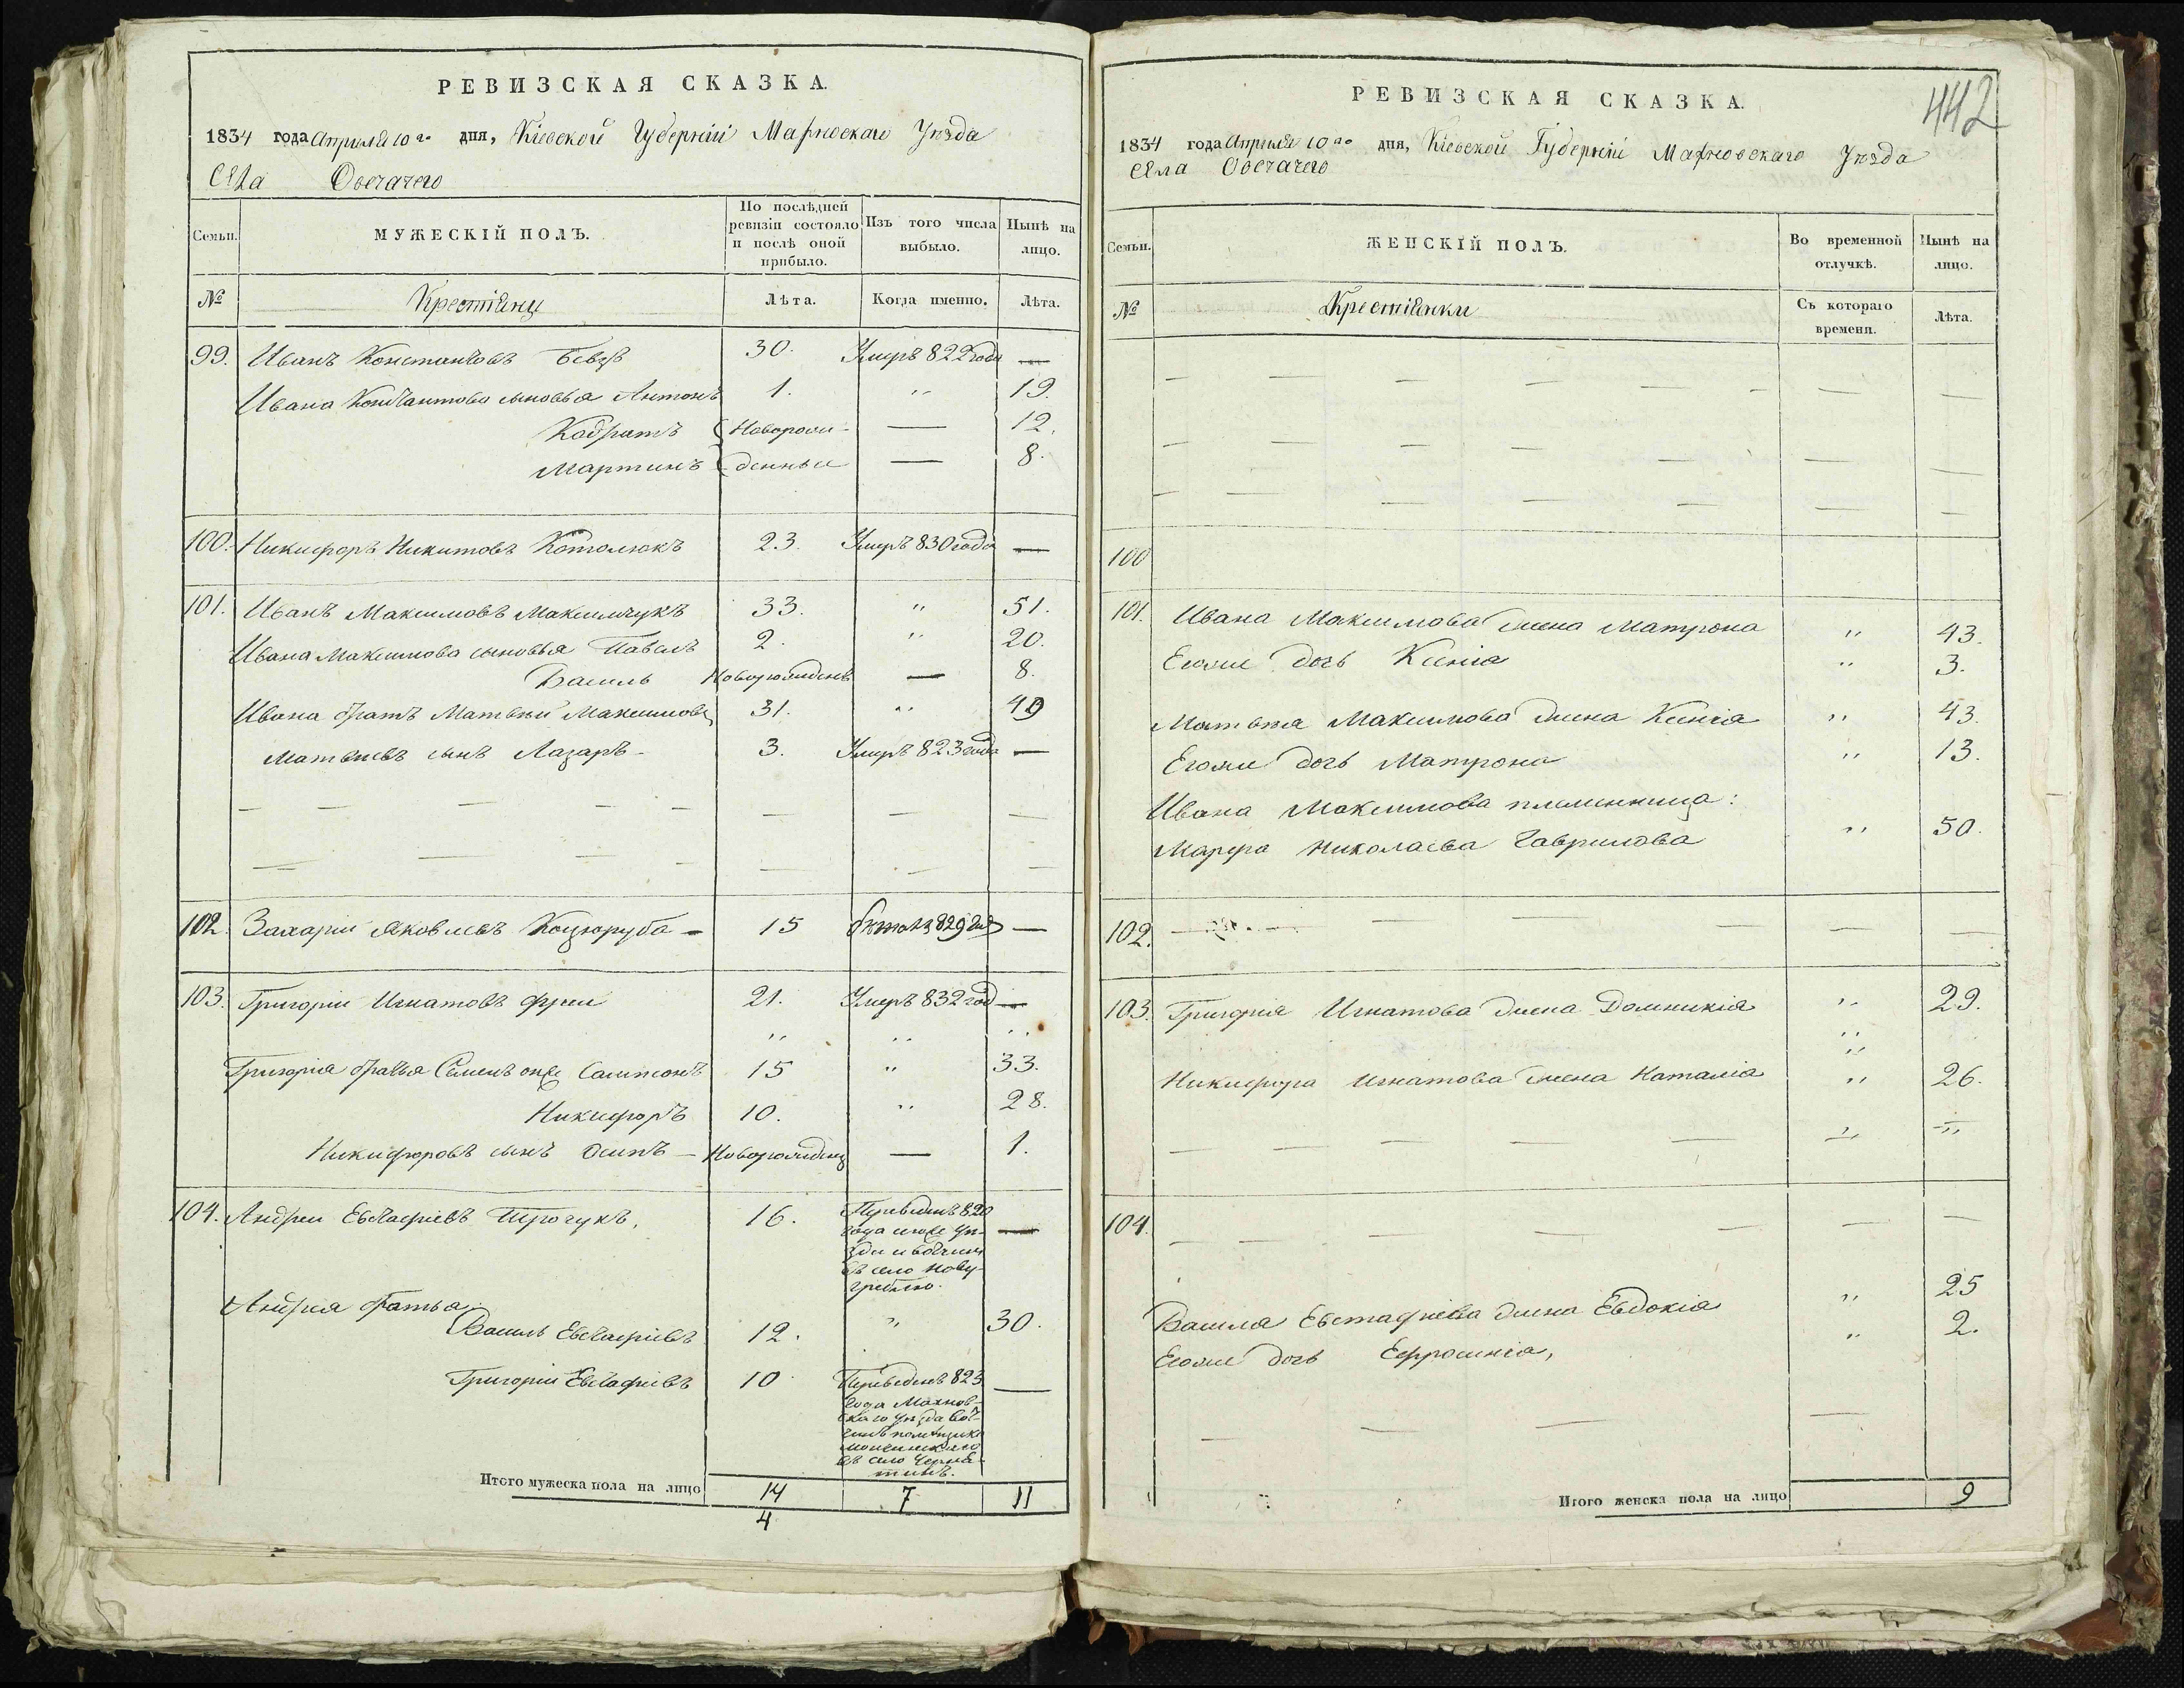 РЕВИЗСКАЯ СКАЗКА.
1834 года Апреля 10го дня, Кіевской Губерніи Махновскаго Уѣзда
Села Овечачего
Семьи. МУЖЕСКІЙ ПОЛЪ. По послѣдней ревизіи состояло и послѣ оной прибыло. Изъ того числа выбыло. Нынѣ на лицо.
№ Крестіяне Лѣта. Когда именно. Лѣта.
99. Иванъ Константовъ Бевзъ 30. Умеръ 822 года —
Ивана Константова сыновья Антонъ 1. " 19.
Кодратъ Новорож- — 12.
Мартинъ денные — 8.
100. Никифоръ Никитовъ 23. Умеръ 830 года —
101. Иванъ Максимовъ Максимчукъ 33. " 51.
Ивана Максимова сыновья Павелъ 2. " 20.
Василь Новорожденъ — 8.
Ивана братъ Матвѣй Максимовъ 31. " 49
Матвѣевъ сынъ Лазаръ - 3. Умеръ 823 года —
102. Захарій Яковлевъ Коцюруба - 15 829 —
103. Григорій Игнатовъ 21. Умеръ 832 год —
" " "
Григорія братья Семенъ онже Сампсонъ 15 " 33.
Никифоръ 10. " 28.
Никифоровъ сынъ Осипъ — Новорожденъ — 1.
104. Андрей Евстафіевъ 16. Переведенъ 820
года сюже уѣ- —
зди и вотчины
въ село Нову-
греблю.
Андрея братья
Василь Евстафіевъ 12. " 30.
Григорій Евстафіевъ 10 Переведенъ 823 —
года Махнов-
скаго уѣзда вот-
чинѣ помѣщика
въ село Черня-
тинъ.
Итого мужеска пола на лицо 14 7 11
4
442
РЕВИЗСКАЯ СКАЗКА.
1834 года Апреля 10го дня, Кіевской Губерніи Махновскаго Уѣзда
Села Овечачего
Семьи. ЖЕНСКІЙ ПОЛЪ. Во временной отлучкѣ. Нынѣ на лицо.
№ Крестіянки Съ котораго времени. Лѣта.
100
101. Ивана Максимова жена Матрона " 43.
Егоже дочь Ксенія " 3.
Матвѣя Максимова жена Ксенія " 43.
Егоже дочь Матрона " 13.
Ивана Максимова племенница:
Марфа Николаева Гаврилова " 50.
102.
103. Григорія Игнатова жена Домникія " 29.
"
"
Никифора Игнатова жена Наталія " 26.
" "
104.
Василя Евстафіева жена Евдокія " 25
Егоже дочь Ефросинія, " 2.
Итого женска пола на лицо 9